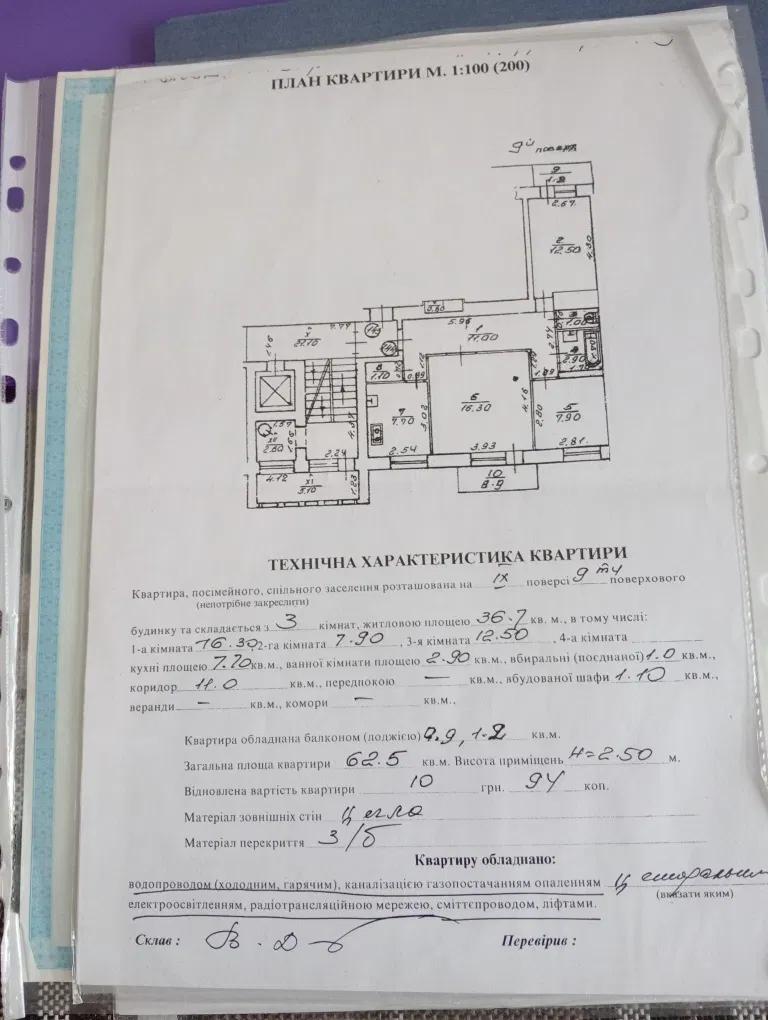 ПЛАН КВАРТИРИ М. 1:100 (200)
9й поверх
9
1.2
2.67
2
12.50
4.30
0.60
5.96
1
11.00
2.77
1.00
X
22.10
7.77
1.46
8
1.10
0.89
1.09
2.90
1.70
6
16.30
4.16
3.93
7
7.70
3.02
2.54
5
7.90
2.80
2.81
1.37
XII
2.60
1.66
4.37
2.24
4.12
XI
5.10
1.23
10
8.9
ТЕХНІЧНА ХАРАКТЕРИСТИКА КВАРТИРИ
Квартира, посімейного, спільного заселення розташована на IX поверсі 9ти поверхового
(непотрібне закреслити)
будинку та складається з 3 кімнат, житловою площею 36.7 кв. м., в тому числі:
1-а кімната 16.30, 2-га кімната 7.90, 3-я кімната 12.50, 4-а кімната
кухні площею 7.70 кв.м., ванної кімнати площею 2.90 кв.м., вбиральні (поєднаної) 1.0 кв.м.,
коридор 11.0 кв.м., передпокою — кв.м., вбудованої шафи 1.10 кв.м.,
веранди — кв.м., комори — кв.м.,
Квартира обладнана балконом (лоджією) 0.9, 1.2 кв.м.
Загальна площа квартири 62.5 кв.м. Висота приміщень H=2.50 м.
Відновлена вартість квартири 10 грн. 94 коп.
Матеріал зовнішніх стін Цегла
Матеріал перекриття З/б
Квартиру обладнано:
водопроводом (холодним, гарячим), каналізацією газопостачанням опаленням Центральним
(вказати яким)
електроосвітленням, радіотрансляційною мережею, сміттєпроводом, ліфтами.
Склав : Перевірив :